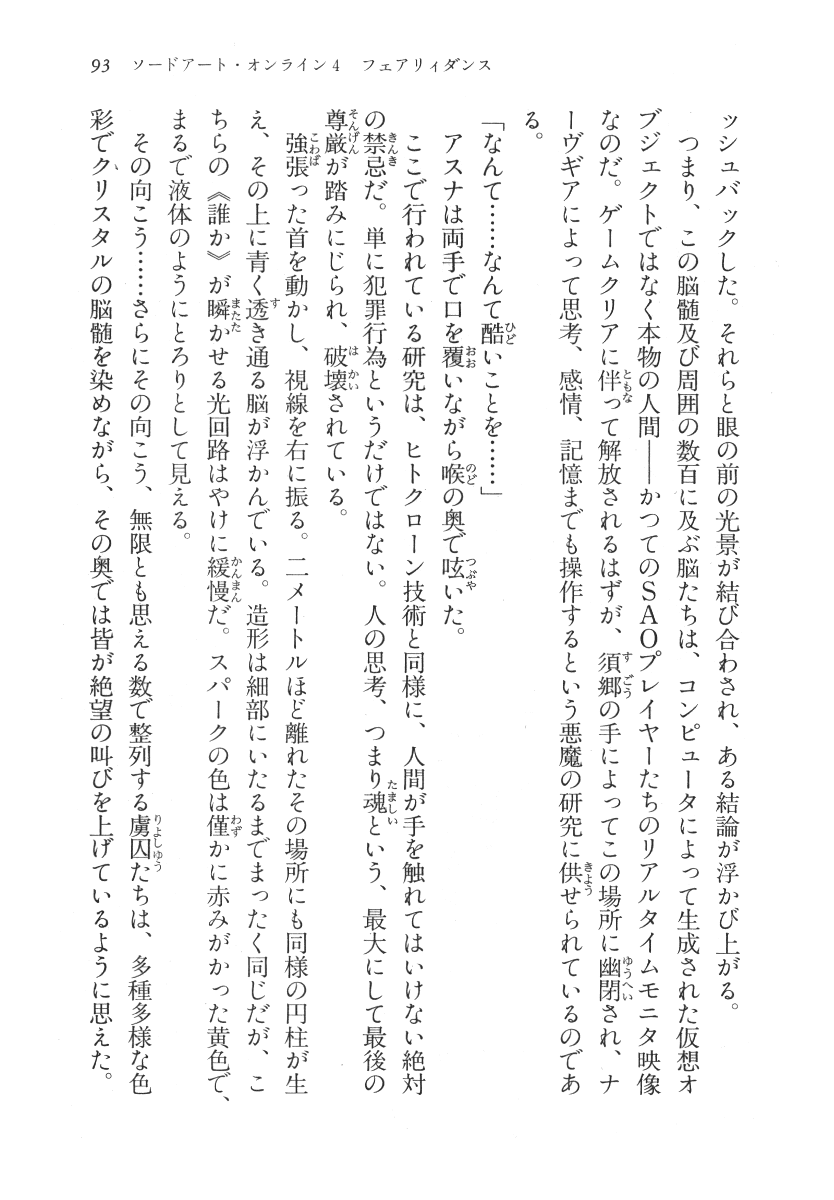 93 ソードアート・オンライン4 フェアリィダンス
ッシュバックした。それらと眼の前の光景が結び合わされ、ある結論が浮かび上がる。
つまり、この脳髄及び周囲の数百に及ぶ脳たちは、コンピュータによって生成された仮想オ
ブジェクトではなく本物の人間――かつてのSAOプレイヤーたちのリアルタイムモニタ映像
なのだ。ゲームクリアに伴って解放されるはずが、須郷の手によってこの場所に幽閉され、ナ
ーヴギアによって思考、感情、記憶までも操作するという悪魔の研究に供せられているのであ
る。
「なんて……なんて酷いことを……」
アスナは両手で口を覆いながら喉の奥で呟いた。
ここで行われている研究は、ヒトクローン技術と同様に、人間が手を触れてはいけない絶対
の禁忌だ。単に犯罪行為というだけではない。人の思考、つまり魂という、最大にして最後の
尊厳が踏みにじられ、破壊されている。
強張った首を動かし、視線を右に振る。二メートルほど離れたその場所にも同様の円柱が生
え、その上に青く透き通る脳が浮かんでいる。造形は細部にいたるまでまったく同じだが、こ
ちらの《誰か》が瞬かせる光回路はやけに緩慢だ。スパークの色は僅かに赤みがかった黄色で、
まるで液体のようにとろりとして見える。
その向こう……さらにその向こう、無限とも思える数で整列する虜囚たちは、多種多様な色
彩でクリスタルの脳髄を染めながら、その奥では皆が絶望の叫びを上げているように思えた。